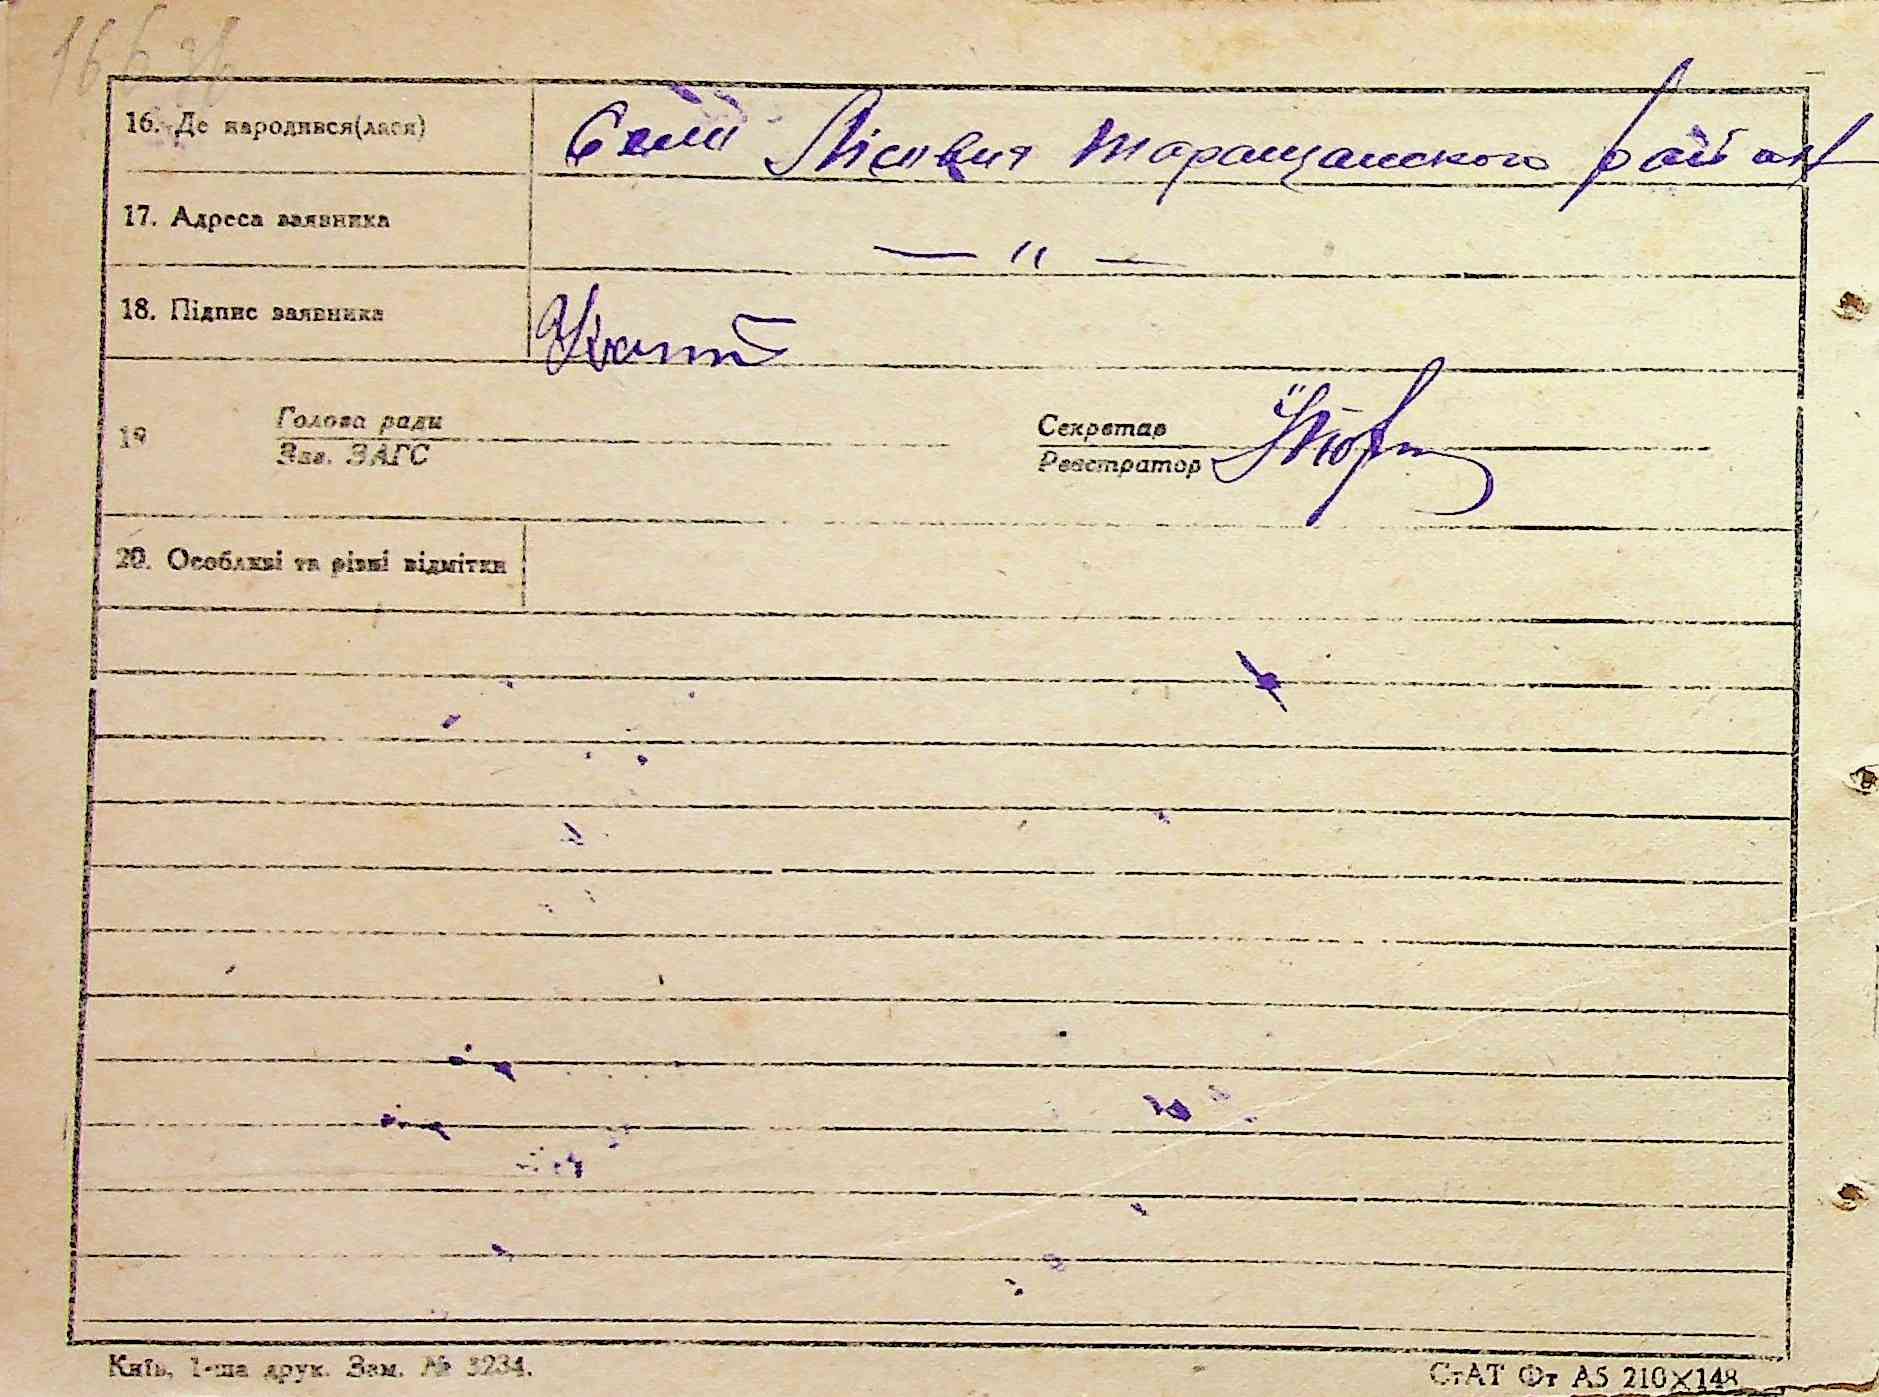 16. Де народився(лася) Селі Лісовия Таращанского район
17. Адреса заявника — „ —
18. Підпис заявника
19 Голова ради Секретар
Зав. ЗАГС Реєстратор
20. Особливі та різні відмітки
Київ, 1-ша друк. Зам. № 3234.
СтАТ Фт А5 210×148